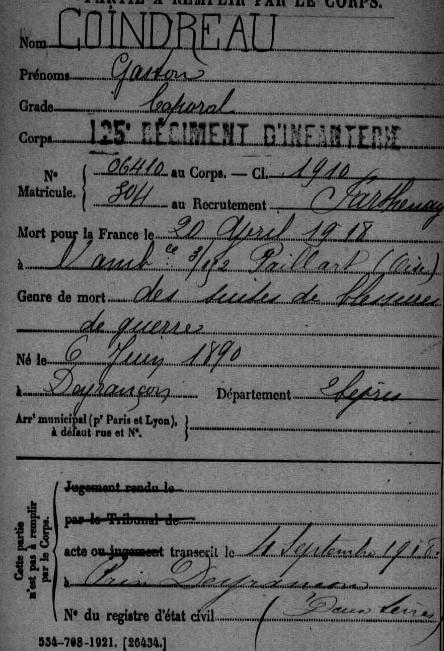 PARTIE À REMPLIR PAR LE CORPS.
Nom COINDREAU
Prénoms Gaston
Grade Caporal
Corps 125e RÉGIMENT D'INFANTERIE
N° Matricule. { 06410 au Corps. — Cl. 1910
304 au Recrutement Parthenay
Mort pour la France le 20 April 1918
à l'amb ce 3/152 Paillart (Oise)
Genre de mort des suites de blessures
de guerre
Né le 6 Juin 1890
à Deyrançon Département 2 Sèvres
Arrt municipal (pr Paris et Lyon), à défaut rue et N°. }
Cette partie n'est pas à remplir par le Corps.
Jugement rendu le
par le Tribunal de
acte ou jugement transcrit le 4 Septembre 1918
à Prin Deyrançon
N° du registre d'état civil (Deux Sèvres
534-708-1921. [26434.]